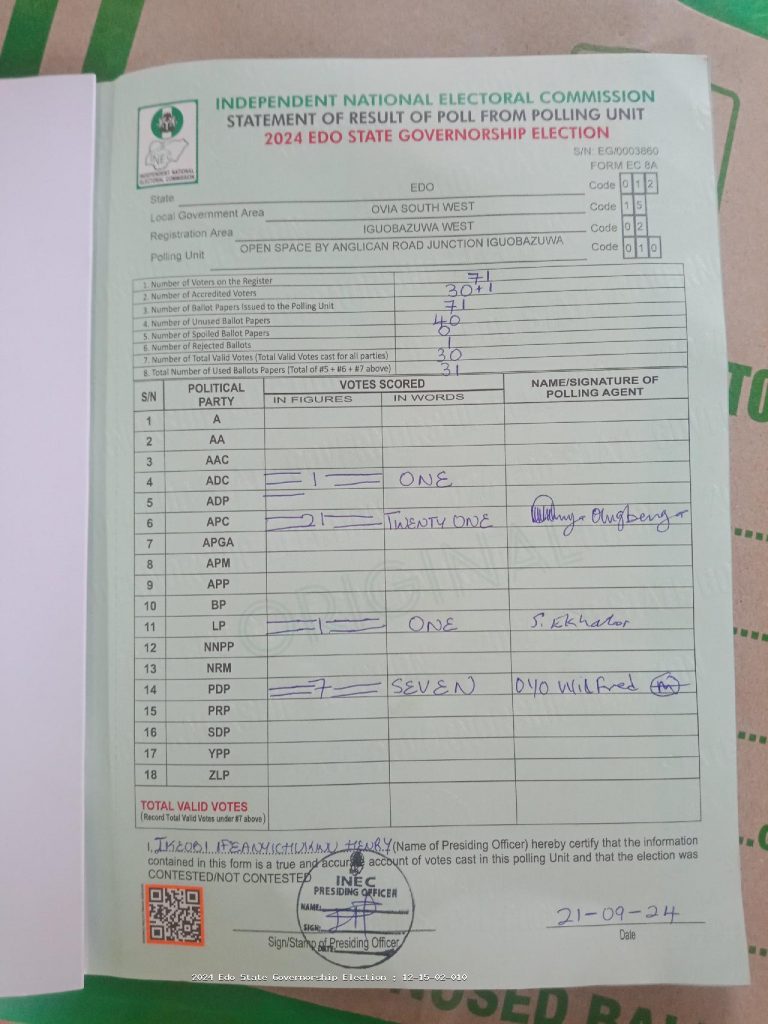 INDEPENDENT NATIONAL ELECTORAL COMMISSION
STATEMENT OF RESULT OF POLL FROM POLLING UNIT
2024 EDO STATE GOVERNORSHIP ELECTION
INEC
INDEPENDENT NATIONAL
ELECTORAL COMMISSION
S/N: EG/0003860
FORM EC 8A
State EDO Code 0 1 2
Local Government Area OVIA SOUTH WEST Code 1 5
Registration Area IGUOBAZUWA WEST Code 0 2
Polling Unit OPEN SPACE BY ANGLICAN ROAD JUNCTION IGUOBAZUWA Code 0 1 0
1. Number of Voters on the Register 71
2. Number of Accredited Voters 30+1
3. Number of Ballot Papers Issued to the Polling Unit 71
4. Number of Unused Ballot Papers 40
5. Number of Spoiled Ballot Papers 0
6. Number of Rejected Ballots 1
7. Number of Total Valid Votes (Total Valid Votes cast for all parties) 30
8. Total Number of Used Ballots Papers (Total of #5 + #6 + #7 above) 31
S/N POLITICAL PARTY VOTES SCORED NAME/SIGNATURE OF POLLING AGENT
IN FIGURES IN WORDS
1 A
2 AA
3 AAC
4 ADC 1 ONE
5 ADP
6 APC 21 TWENTY ONE
7 APGA
8 APM
9 APP
10 BP
11 LP 1 ONE S. Ekhator
12 NNPP
13 NRM
14 PDP 7 SEVEN OYO Wilfred
15 PRP
16 SDP
17 YPP
18 ZLP
ORIGINAL
TOTAL VALID VOTES
(Record Total Valid Votes under #7 above)
I, HENRY (Name of Presiding Officer) hereby certify that the information
contained in this form is a true and accurate account of votes cast in this polling Unit and that the election was
CONTESTED/NOT CONTESTED
INEC
PRESIDING OFFICER
NAME:
SIGN:
DATE:
21-09-24
Sign/Stamp of Presiding Officer Date
2024 Edo State Governorship Election : 12-15-02-010